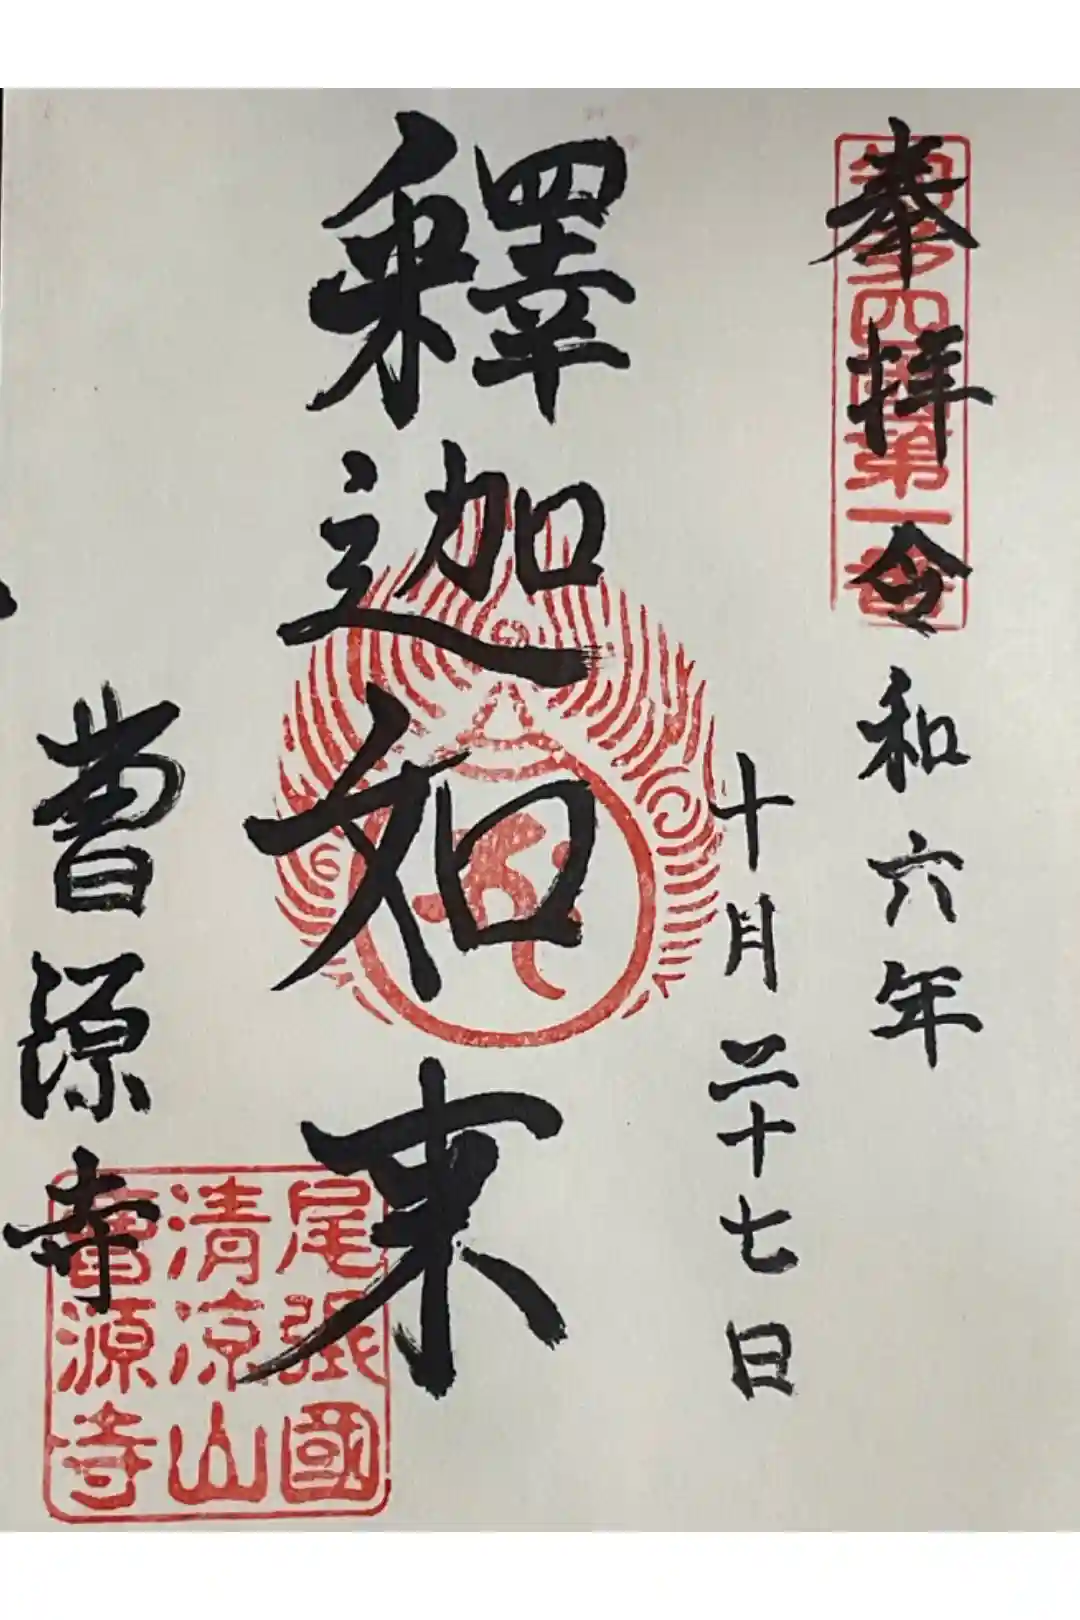 奉拝
令和六年
十月二十七日
釋迦如来
曹源寺
知多四國第一番
尾張國
清涼山
曹源寺